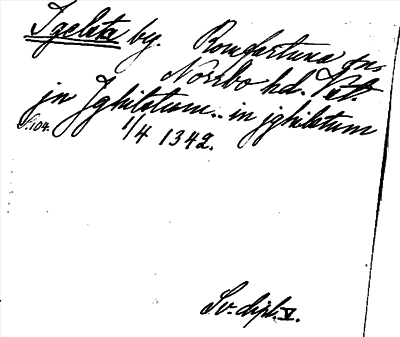 Igelsta by. Romfartuna sn,
Norrbo hd. Vstm.
jn Jghilstum.. in jghilstum
S. 104. 1/4 1342.
Sv. dipl. V.